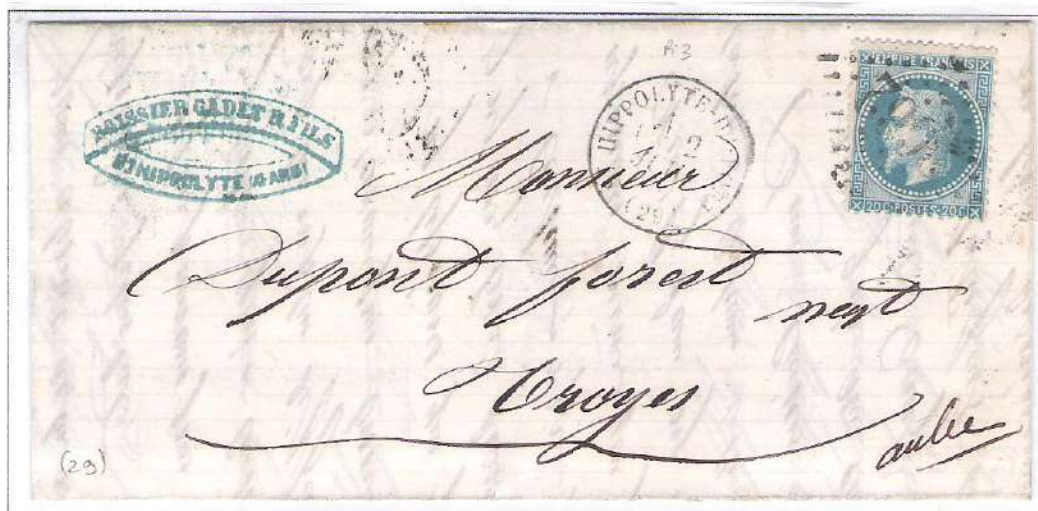 BOISSIER CADET & FILS
ST HIPPOLYTE (GARD)
HIPPOLYTE-D
2
(29)
EMPIRE FRANCAIS
20C POSTES 20C
Monsieur
Dupont forest
negt
Troyes
aube
(29)